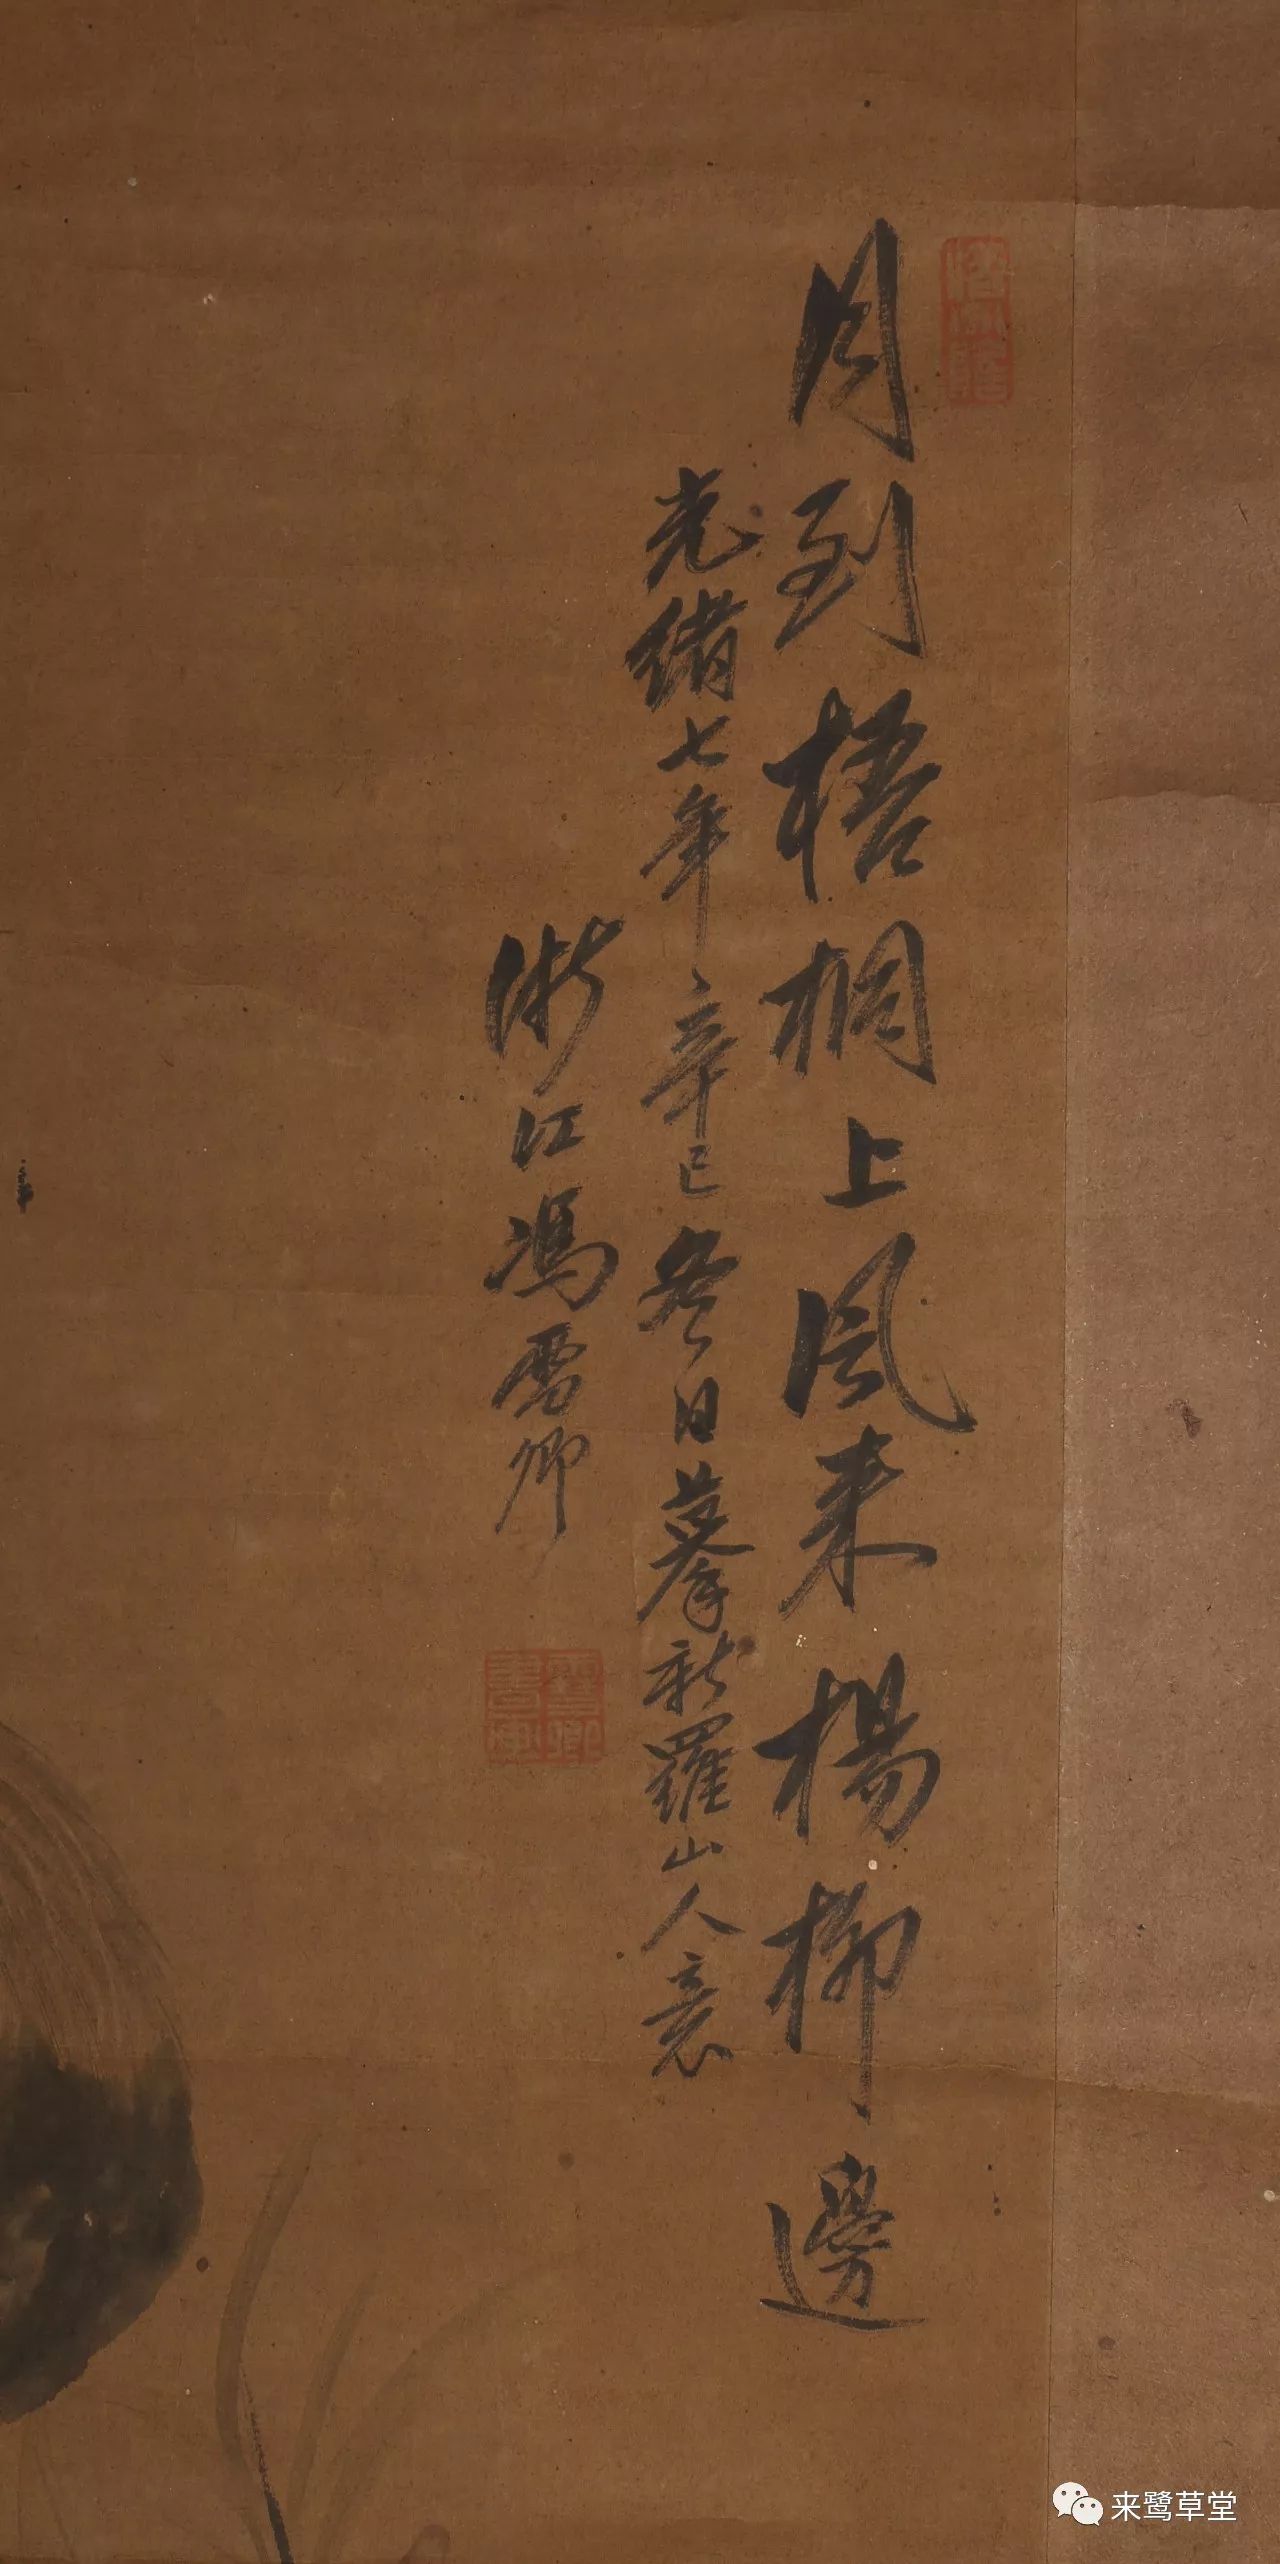 月到梧桐上風来楊柳邊
光緒七年辛巳冬日摹新羅山人意
浙江馮雪卿
雪卿書画
来鹭草堂